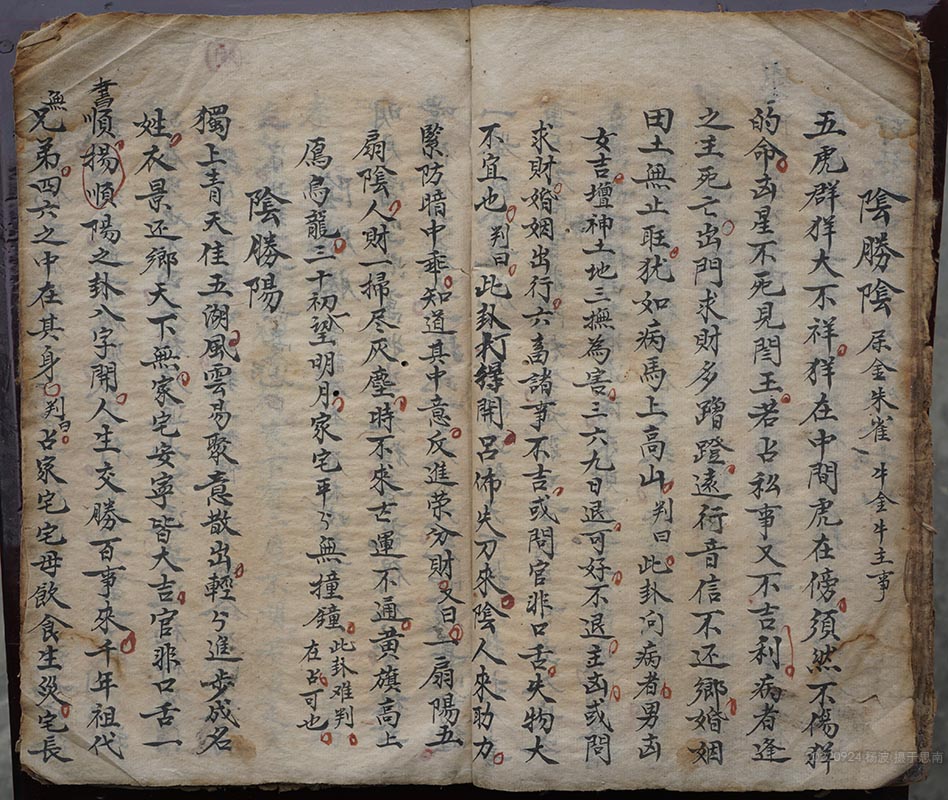 陰勝陰 屎金朱雀 牛金牛主事
五虎群羊大不祥羊在中間虎在傍須然不傷羊
的命凶星不死見閆王若占私事又不吉利病者逢
之主死亡出門求財多蹭蹬遠行音信不还鄉婚姻
田土無止旺犹如病馬上高山判曰此卦问病者男凶
女吉壇神土地三撫為害三六九日退可好不退主凶或問
求財婚姻出行六畜諸事不吉或問官非口舌失物大
不宜也判曰此卦打得開呂佈失刀來陰人來助力
緊防暗中乖知道其中意反進荣分財又曰一扇陽五
扇陰人財一掃尽灰塵時不來亡運不通黃旗高上
鳫烏龍三十初一望明月家宅平々無撞鐘此卦难判在占可也
陰勝陽
獨上青天佳五湖風雲易聚意散出輕々進步成名
姓衣景还鄉天下無家宅安寧皆大吉官非口舌一
書順揚順陽之卦八字開人生交勝百事來千年祖代
無兄弟四六之中在其身判曰占家宅宅母飲食生災宅長
20220924 杨波 摄于思南